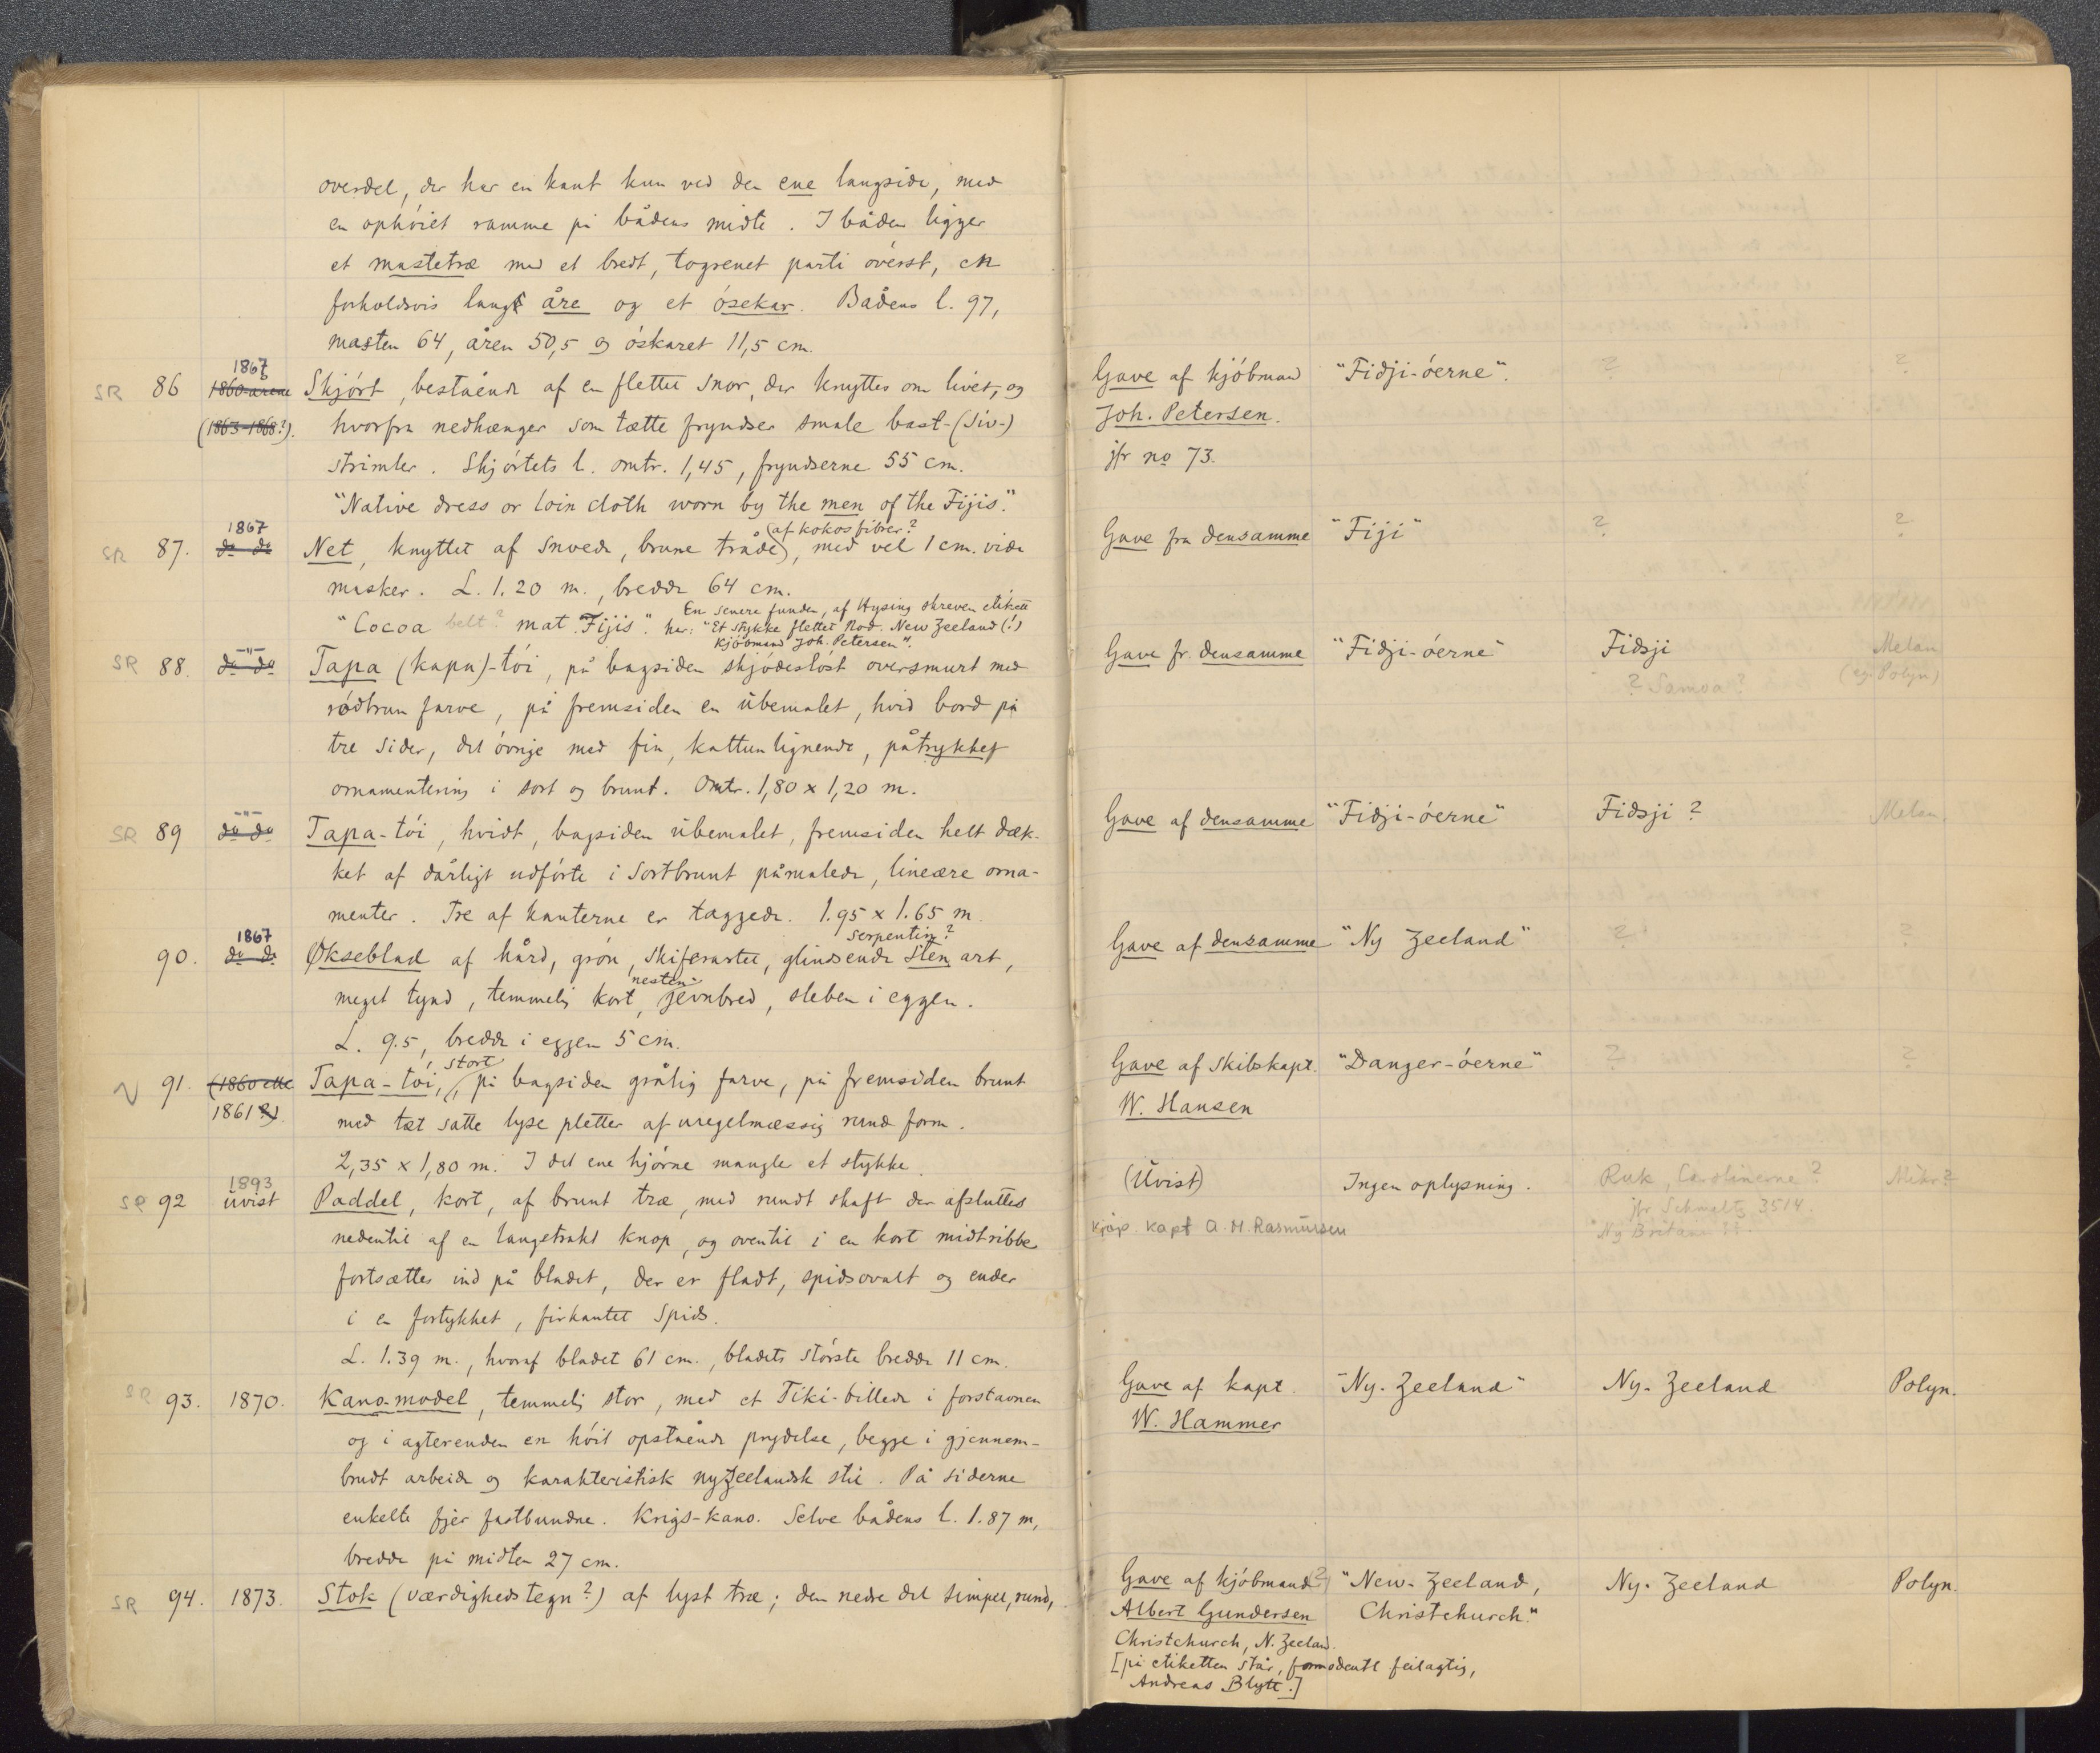 overdel, der har en kant kun ved den ene langside, med
en ophóiet ramme på bådens midte. I båden ligger
et mastetræ med et bredt, togrenet parti óverst, en
forholdsvis lang åre og et ósekar. Bådens l. 97,
masten 64, åren 50,5 og óskaret 11,5 cm.
SR 86 1867 1860-årene Skjórt, bestående af en flettet snor, der knyttes om livet, og
(1863-1868?). hvorfra nedhænger som tætte fryndser smale bast-(siv-)
strimler. Skjórtets l. omtr. 1,45, fryndserne 55 cm.
"Native dress or loin cloth worn by the men of the Fijis."
SR 87. 1867 do do Net, knyttet af snoede, brune tråde (af kokosfibrer?), med vel 1 cm. vide
masker. L. 1.20 m., bredde 64 cm.
"Cocoa belt? mat Fijis". En senere funden, af Hysing skreven etikett
har: "Et stykke flettet Rod. New Zeeland (!)
Kjóbmand Joh. Petersen".
SR 88. -"- do do Tapa (kapa)-tói, på bagsiden skjódeslóst oversmurt med
ródbrun farve, på fremsiden en ubemalet, hvid bord på
tre sider, det óvrige med fin, kattunlignende, påtrykket
ornamentering i sort og brunt. Omtr. 1,80 x 1,20 m.
SR 89 -"- do do Tapa-tói, hvidt, bagsiden ubemalet, fremsiden helt dæk-
ket af dårligt udfórte i sortbrunt påmalede, lineære orna-
menter. Tre af kanterne er taggede. 1.95 x 1.65 m.
90. 1867 do do Økseblad af hård, grón, skiferartet, glindsende stenart, serpentin?
meget tynd, temmelig kort, nesten jevnbred, sleben i eggen.
L. 9.5, bredde i eggen 5 cm.
N 91. (1860 eller Tapa-tói, stort, på bagsiden grålig farve, på fremsiden brunt
1861?). med tæt satte lyse pletter af uregelmæssig rund form.
2,35 x 1,80 m. I det ene hjórne mangle et stykke.
SR 92 1893 uvist Paddel, kort, af brunt træ, med rundt skaft der afsluttes
nedentil af en langstrakt knop, og oventil i en kort midtribbe
fortsættes ind på bladet, der er fladt, spidsovalt og ender
i en fortykket, firkantet spids.
L. 1.39 m., hvoraf bladet 61 cm., bladets stórste bredde 11 cm.
SR 93. 1870. Kano-model, temmelig stor, med et Tiki-billede i forstavnen
og i agterenden en hóit opstående prydelse, begge i gjennem-
brudt arbeide og karakteristisk nyzeelandsk stil. På siderne
enkelte fjer fastbundne. Krigs-kano. Selve bådens l. 1.87 m,
bredde på midten 27 cm.
SR 94. 1873. Stok (værdighedstegn?) af lyst træ; den nedre del simpel, rund,
Gave af kjóbmand "Fidji-óerne". ? ?
Joh. Petersen.
jfr no 73.
Gave fra densamme "Fiji" ? ?
Gave fr. densamme "Fidji-óerne" Fidsji Melan
? Samoa? (eg. Polyn)
Gave af densamme "Fidji-óerne" Fidsji ? Melan.
Gave af densamme "Ny Zeeland" ? ?
Gave af skibskapt. "Danger-óerne" ? ?
W. Hansen
(Uvist) Ingen oplysning. Ruk, Carolinerne? Mikr?
jfr Schmeltz 3514.
kjóp. kapt A. M. Rasmussen "Ny Britain"
Gave af kapt. "Ny-Zeeland" Ny-Zeeland Polyn.
W. Hammer
Gave af kjóbmand (?) "New-Zeeland, Ny-Zeeland Polyn.
Albert Gundersen Christchurch."
Christchurch, N. Zeeland.
[på etiketten står, formodentl feilagtig,
Andreas Blytt.]